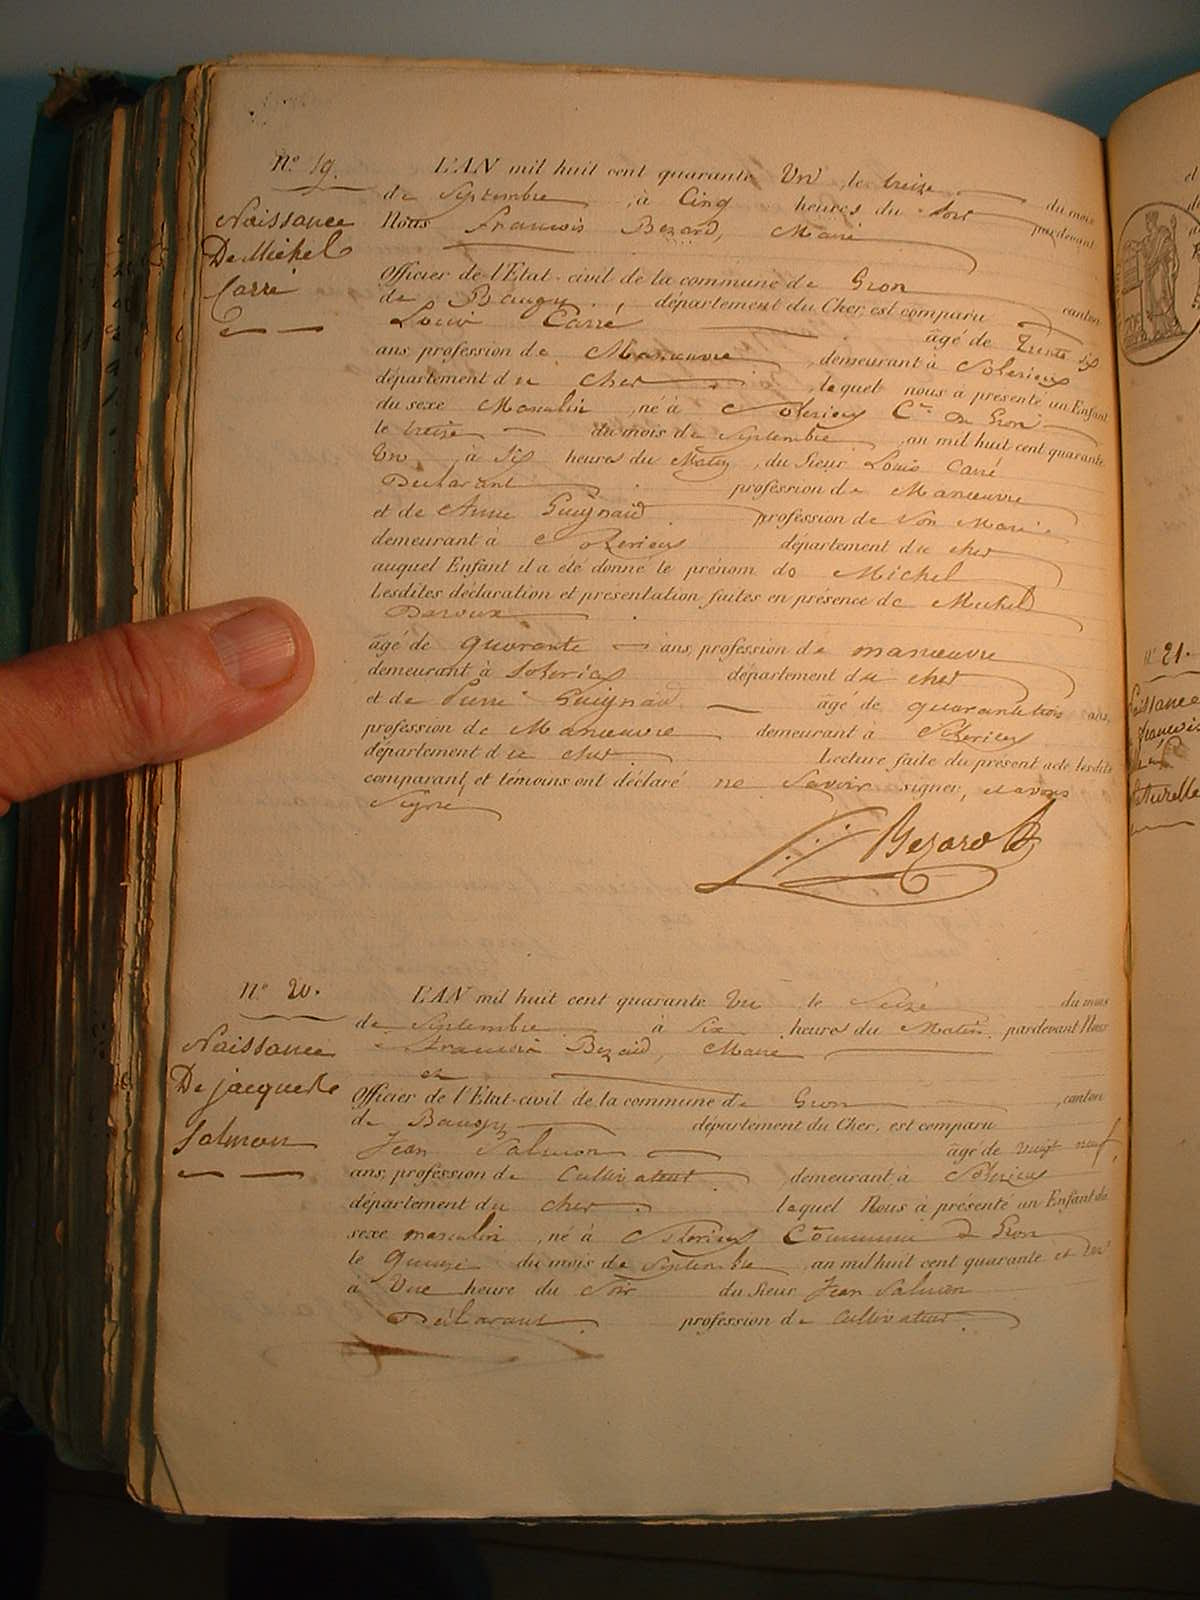 N.º 19.
Naissance
De Michel
Carré
L'AN mil huit cent quarante Un, le treize du mois
de Septembre, à Cinq heures du Soir pardevant
Nous Francois Bezard, Maire
Officier de l'Etat-civil de la commune de Gron canton
de Baugy, département du Cher, est comparu
Louis Carré âgé de Trente six
ans, profession de Manœuvre, demeurant à Solerieux
département du Cher, lequel nous à présenté un Enfant
du sexe Masculin, né à Solerieux C.ne de Gron
le treize du mois de Septembre, an mil huit cent quarante
Un à Six heures du Matin, du Sieur Louis Carré
Declarant profession de Manœuvre
et de Anne Guignard profession de Son Mari
demeurant à Solerieux département du cher
auquel Enfant il a été donné le prénom de Michel
Lesdites déclaration et présentation faites en présence de Michel
âgé de quarante ans, profession de manœuvre
demeurant à Solerieux département du cher
et de Pierre Guignard âgé de quarante trois ans,
profession de Manœuvre demeurant à Solerieux
département du cher Lecture faite du présent acte lesdits
comparant, et témoins ont déclaré ne Savoir signer, et avons
Signé
Bezard
N.º 20.
Naissance
De jacques
Salmon
L'AN mil huit cent quarante Un le Seize du mois
de Septembre à Six heures du Matin pardevant Nous
Francois Bezard, Maire
Officier de l'Etat-civil de la commune de Gron, canton
de Baugy département du Cher, est comparu
Jean Salmon âgé de vingt neuf
ans, profession de Cultivateur demeurant à Solerieux
département du cher. lequel Nous à présenté un Enfant du
sexe masculin, né à Solerieux Commune de Gron
le Quinze du mois de Septembre, an mil huit cent quarante et un
à Une heure du Soir du Sieur Jean Salmon
Déclarant profession de Cultivateur
N.º 21.
Naissance
francois
naturelle